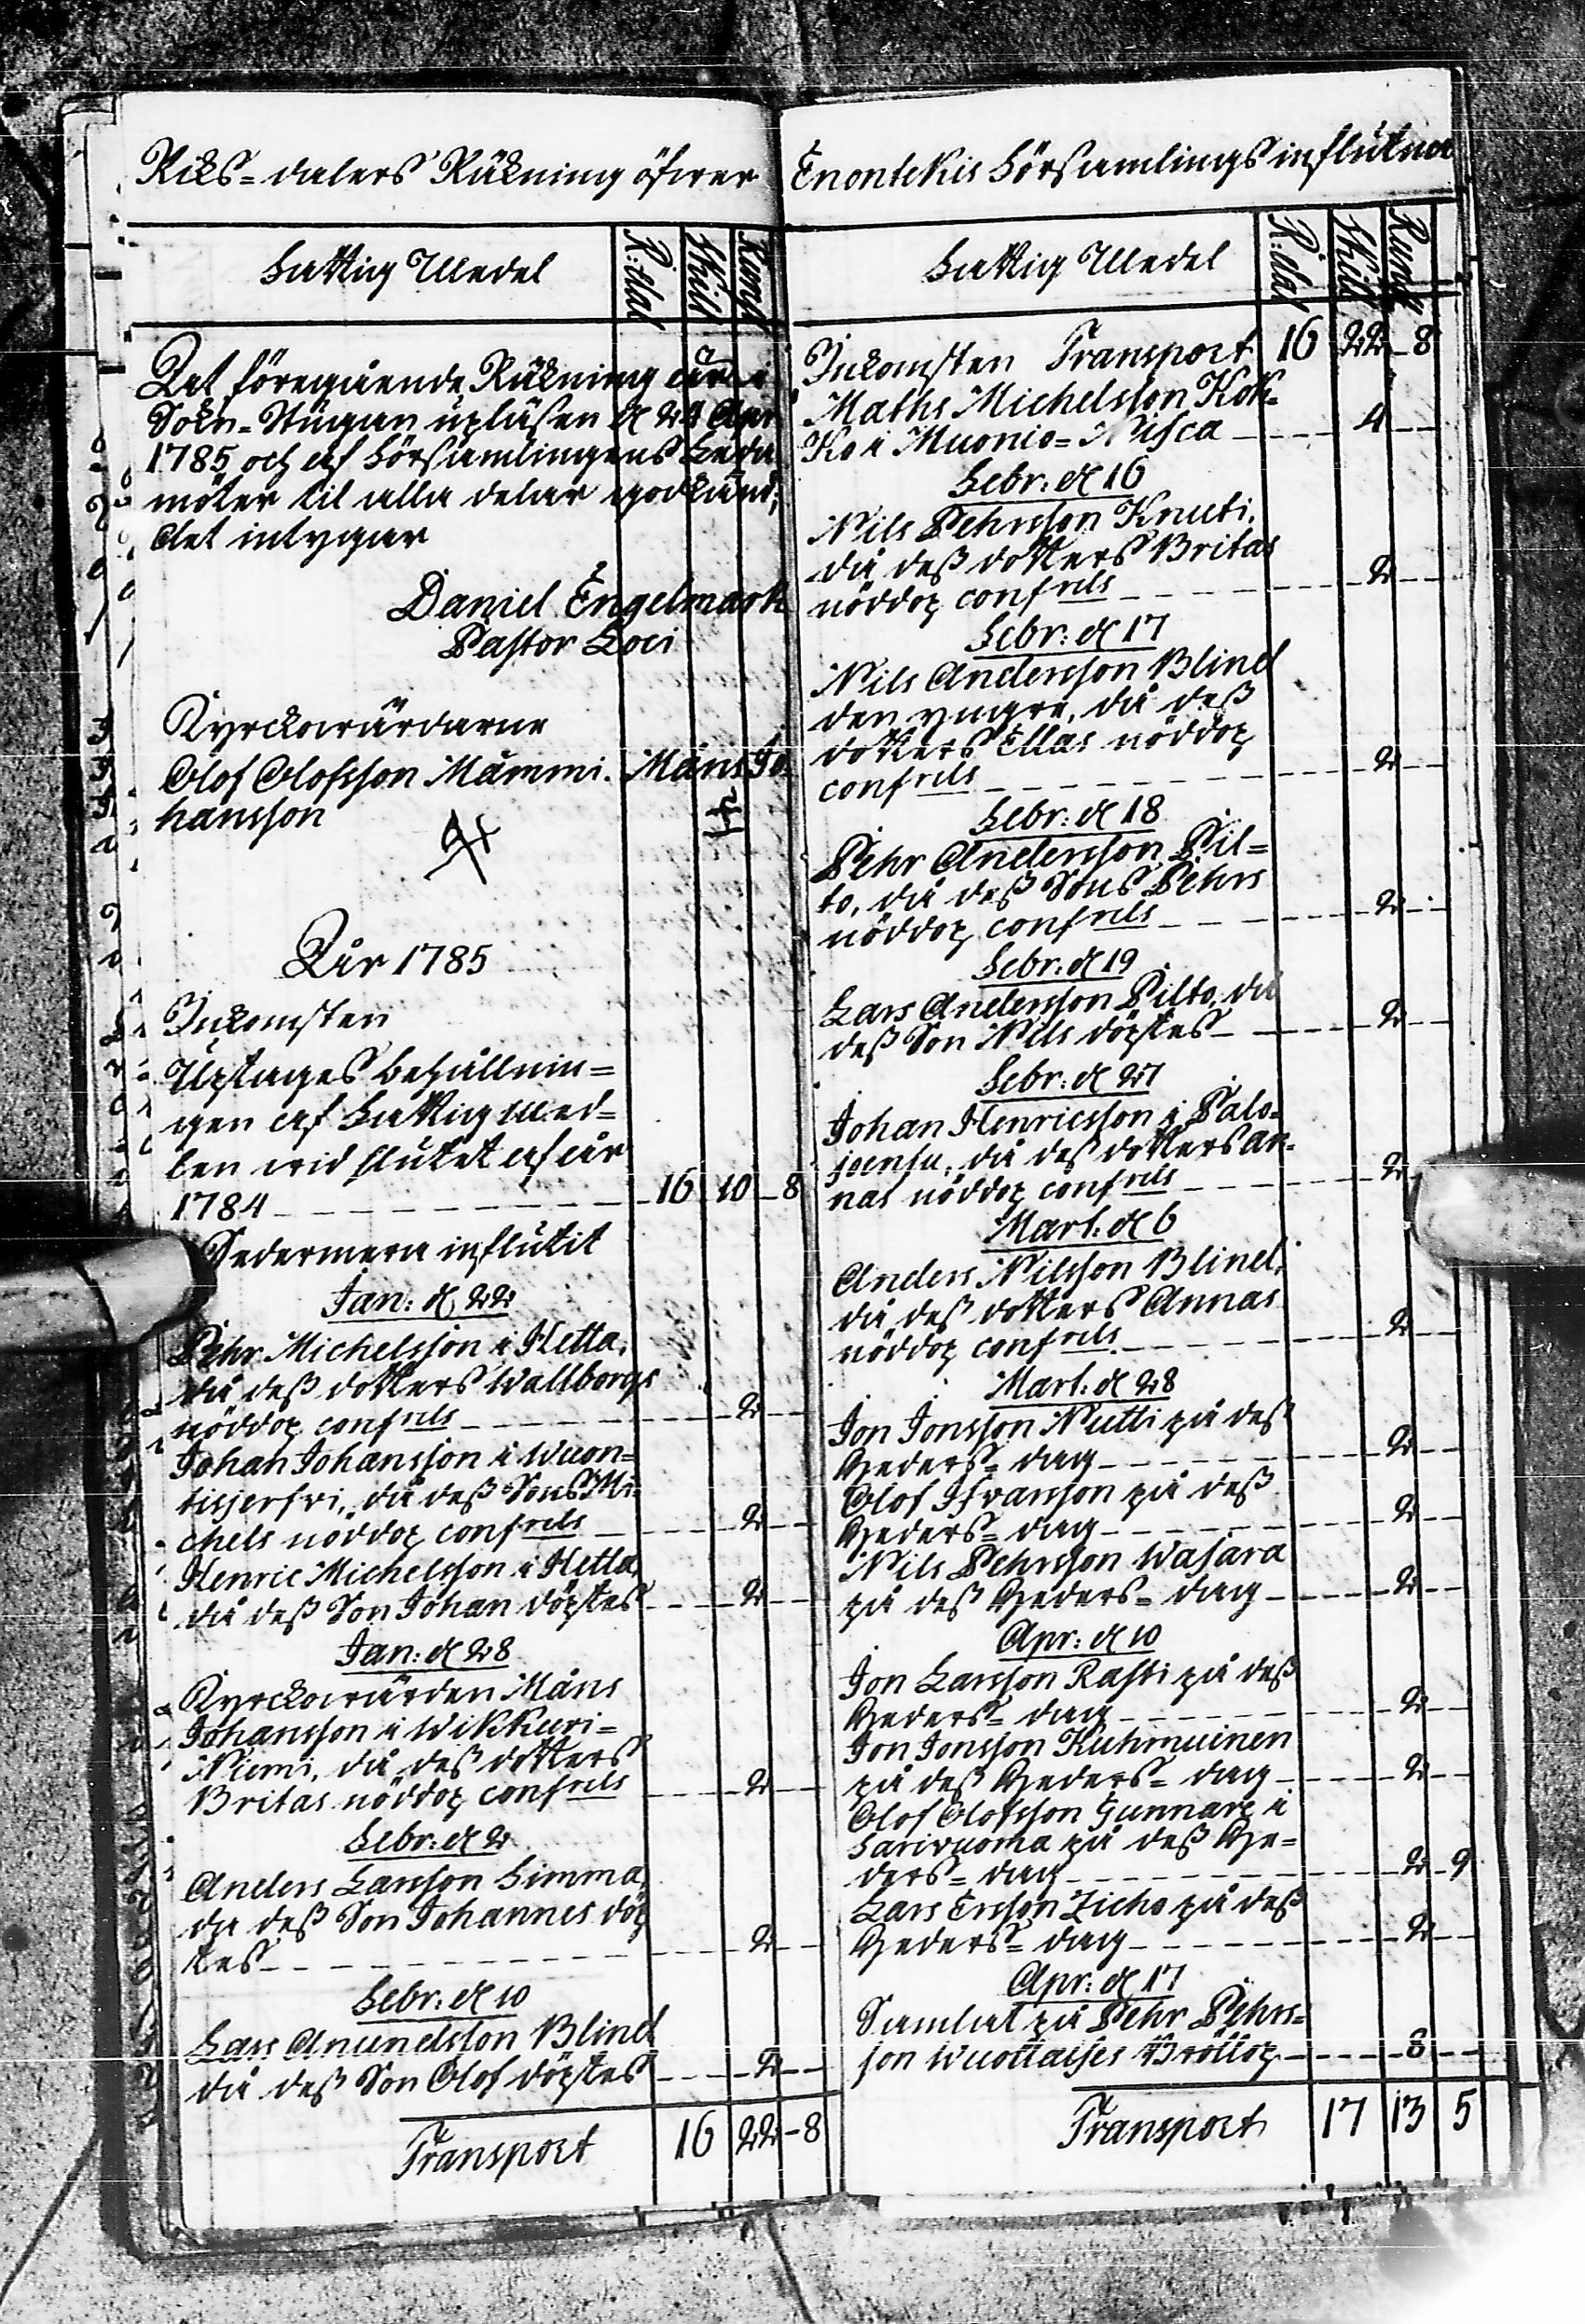 Riks=dalers Räkning öfwer
Fattig Medel
R:dal
Skill
Runst
At föregående Räkning är i
Sokn-Stugan upläsen d 24 Apr
1785 och af Församlingens Leda
möter til alla delar godkänd;
det intygar
Daniel Engelmark
Pastor Loci
Kyrckowärdarne
Olof Olofsson Mämmi. Måns Jo=
hansson
År 1785
Inkomsten
Uptages behållnin=
gen af Fattig Med=
len wid slutet af år
1784 16 10 8
Sedermera influtit
Jan: d 22
Pehr Michelsson i Hetta,
då deß dotters Wallborgs
nöddop confrels 2
Johan Johansson i Wuon=
tisjerfvi, då deß Sons Mi=
chels nöddop confrels 2
Henric Michelsson i Hetta,
då deß Son Johan döptes 2
Jan: d 28
Kyrckowärden Måns
Johansson i Wikkuri=
Niemi, då deß dotters
Britas nöddop confrels 2
Febr: d 2
Anders Larsson Simma,
då deß Son Johannes döp
tes 2
Febr: d 10
Lars Amundsson Blind
då deß Son Olof döptes 2
Transport 16 22 8
Enontekis Församlings influtna
Fattig Medel
R:dal
Skill
Runst
Inkomsten Transport 16 22 8
Maths Michelsson Kok=
Ko i Muonio=Nisca 4
Febr: d 16
Nils Pehrsson Knuti,
då deß dotters Britas
nöddop confrels 2
Febr: d 17
Nils Andersson Blind
den yngre, då deß
dotters Ellas nöddop
confrels 2
Febr: d 18
Pehr Andersson Pil=
to, då deß Sons Pehrs
nöddop confrels 2
Febr: d 19
Lars Andersson Pilto, då
deß Son Nils döptes 2
Febr: d 27
Johan Henricsson i Palo=
joensu, då deß dotters An=
nas nöddop confrels 2
Mart: d 6
Anders Nilsson Blind,
då deß dotters Annas
nöddop confrels 2
Mart: d 28
Jon Jonsson Nutti på deß
Heders=dag 2
Olof Ifvarson på deß
Heders=dag 2
Nils Pehrsson Wasara
på deß Heders=dag 2
Apr: d 10
Jon Larsson Rasti på deß
Heders=dag 2
Jon Jonsson Kuhmuinen
på deß Heders=dag 2
Olof Olofsson Gunnare i
Sarivuoma på deß He=
ders=dag 2 9
Lars Ersson Zicho på deß
Heders=dag 2
Apr: d 17
Samlat på Pehr Pehrs=
son Wuottaises Bröllop 8
Transport 17 13 5